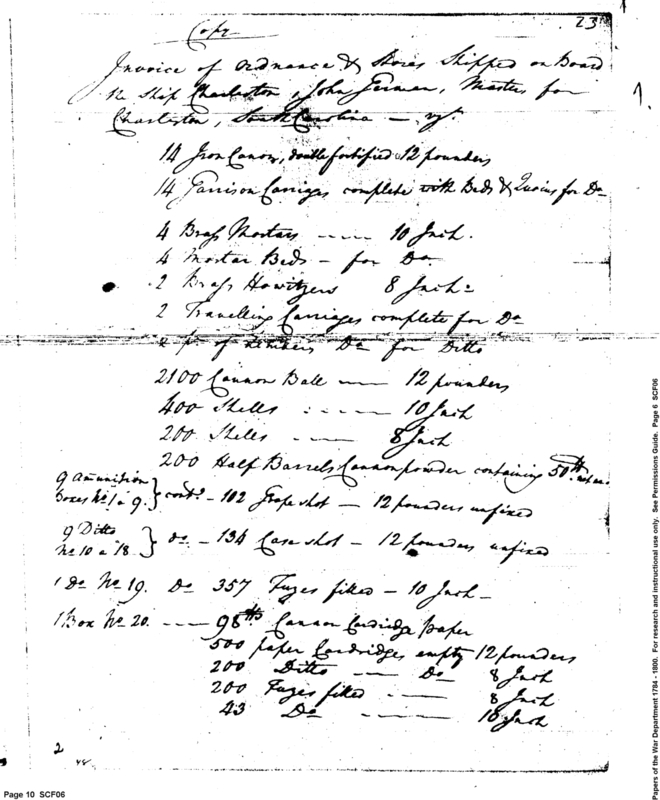 23
Copy
Invoice of Ordnance & Stores Shipped on Board
the Ship Charleston, John German, Master for
Charleston, South Carolina — vizt.
14 Iron Canon, double fortified 12 pounders
14 Garrison Carriages complete with Beds & Quoins for Do
4 Brass Mortars ---- 10 Inch.
4 Mortar Beds - for Do
2 Brass Howitzers 8 Inch
2 Travelling Carriages complete for Do
2 pr. of Do for Ditto
2100 Cannon Ball — 12 pounders
400 Shells ---- 10 Inch
200 Shells ---- 8 Inch
200 Half Barrels Cannon powder containing 50 lb
9 Ammunition
Boxes No. 1 a 9. } cont.g - 102 Grape shot — 12 pounders unfixed
9 Ditto
No 10 a 18 } do - 134 Case shot - 12 pounders unfixed
1 Do No 19. Do 357 Fuzes filled - 10 Inch -
1 Box No 20. ---- 98 lb Cannon Cardridge Paper
500 paper Cardridges empty 12 pounders
200 Ditto — Do 8 Inch
200 Fuzes filled ---- 8 Inch
43 Do ---- 10 Inch
2
Page 10 SCF06
Papers of the War Department 1784 - 1800. For research and instructional use only. See Permissions Guide. Page 6 SCF06